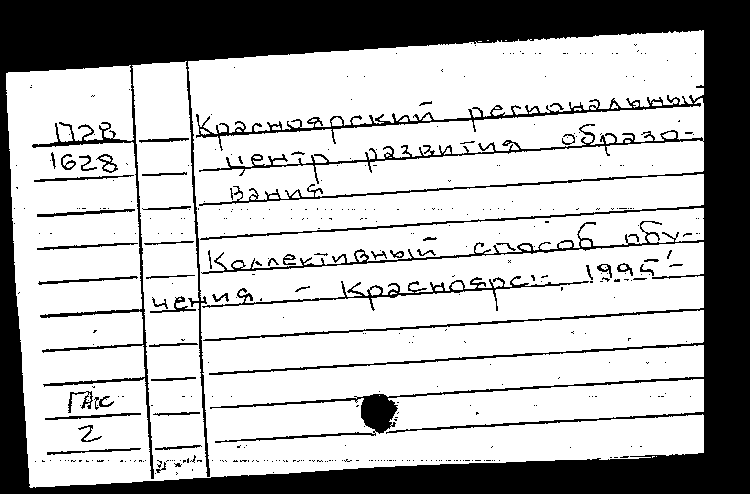 П28 Красноярский региональный
1628 центр развития образо-
вания
Коллективный способ обу-
чения. - Красноярск, 1995 -
2